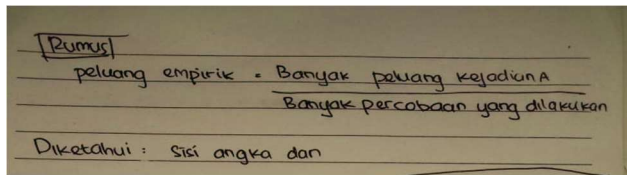 Rumus
peluang empirik = Banyak peluang kejadian A
Banyak percobaan yang dilakukan
Diketahui : sisi angka dan